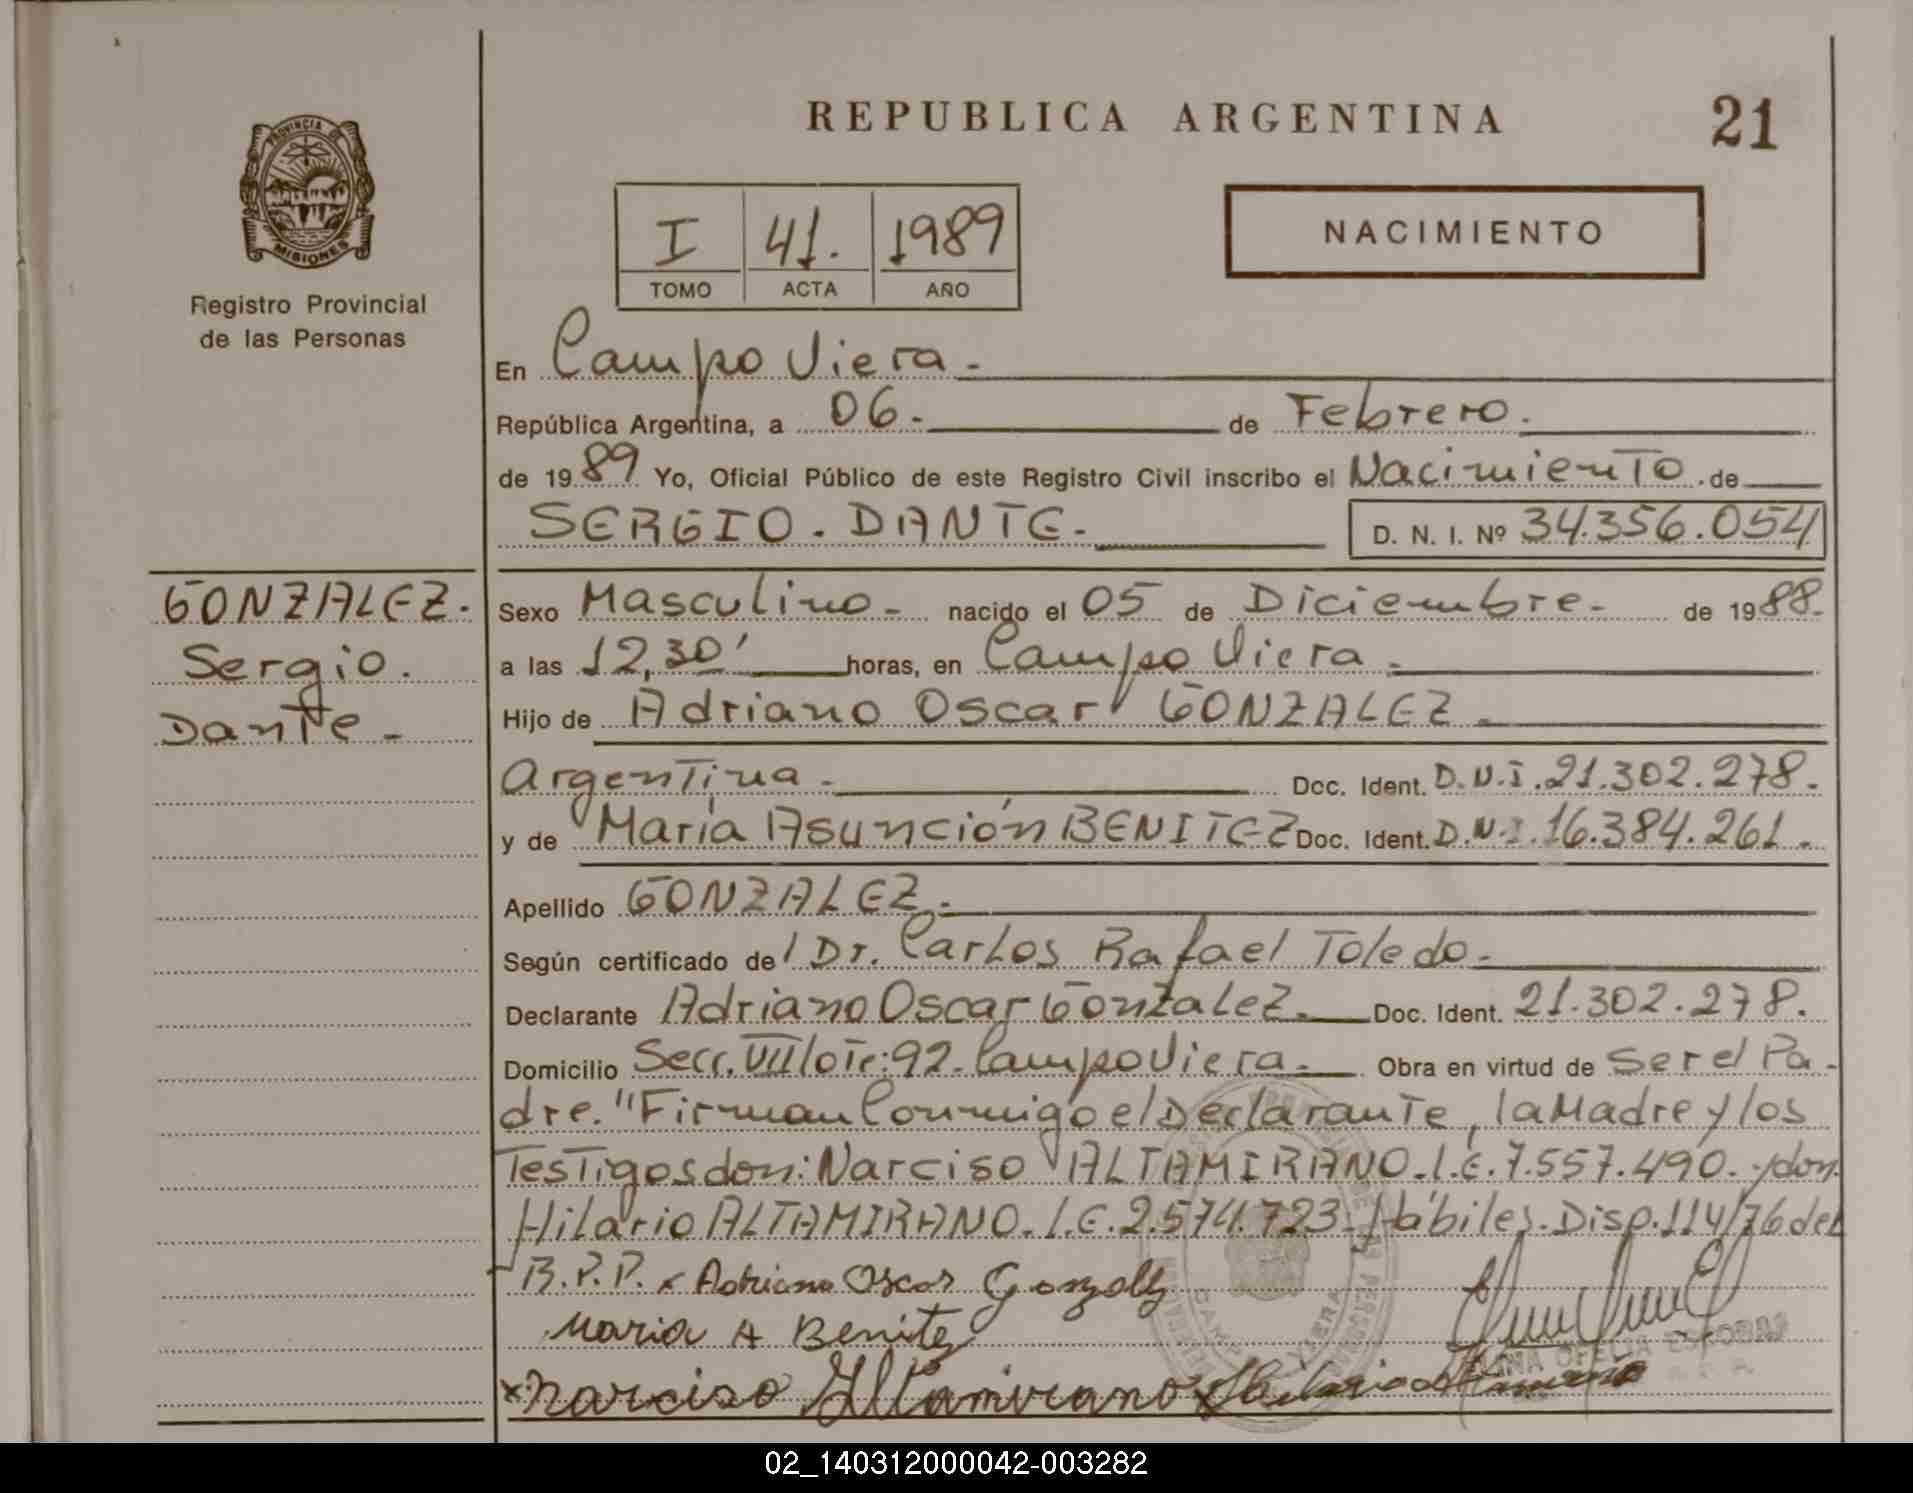 REPUBLICA ARGENTINA
21
PROVINCIA DE
MISIONES
Registro Provincial
de las Personas
I 41. 1989
TOMO ACTA AÑO
NACIMIENTO
En Campo Viera.-
República Argentina, a 06.- de Febrero.
de 1989 Yo, Oficial Público de este Registro Civil inscribo el Nacimiento de
SERGIO. DANTE.- D. N. I. Nº 34.356.054
GONZALEZ.
Sergio.
Dante.-
Sexo Masculino.- nacido el 05 de Diciembre.- de 1988.
a las 12,30' horas, en Campo Viera.-
Hijo de Adriano Oscar GONZALEZ.-
Argentina.- Doc. Ident. D.N.I.21.302.278.
y de María Asunción BENITEZ Doc. Ident. D.N.I.16.384.261.
Apellido GONZALEZ.-
Según certificado del Dr. Carlos Rafael Toledo.-
Declarante Adriano Oscar Gonzalez. Doc. Ident. 21.302.278.
Domicilio Secc. VII lote: 92. Campo Viera.- Obra en virtud de Ser el Pa-
dre. "Firman Conmigo el Declarante, la Madre y los
Testigos don: Narciso ALTAMIRANO. L.E. 7.557.490. y don
Hilario ALTAMIRANO. L.E. 2.574.723. Hábiles. Disp. 114/76 del
R.P.P. x Adriano Oscar Gonzalez
Maria A Benitez
x Narciso Altamirano x Hilario Altamirano
OFELIA
02_140312000042-003282